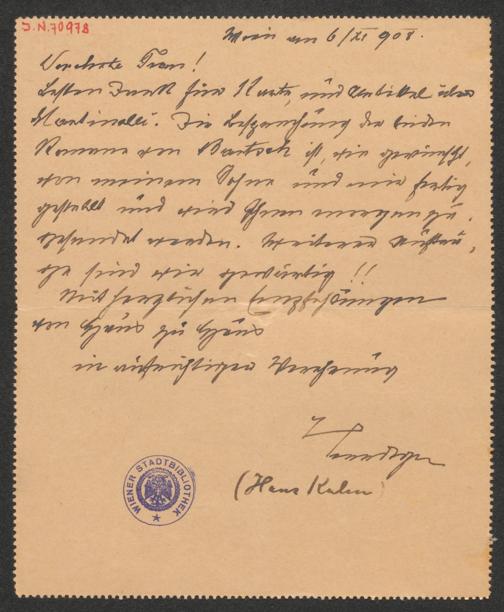 J.N. 70978
Wien am 6/XI 908.
Verehrte Frau!
Besten Dank für Karte, und Artikel über
Martinelli. Die Besprechung der beiden
Romane von Bartsch ist, wie gewünscht,
von meinem Sohne und mir fertig
gestellt und wird Ihnen morgen zu-
gesendet werden. Weiterer Aufträ-
ge sind wir gewärtig!!
Mit herzlichen Empfehlungen
von Haus zu Haus
in aufrichtiger Verehrung
(Hans Kalen)
WIENER STADTBIBLIOTHEK